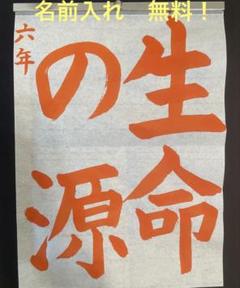 名前入れ 無料！
生命
の源
六年